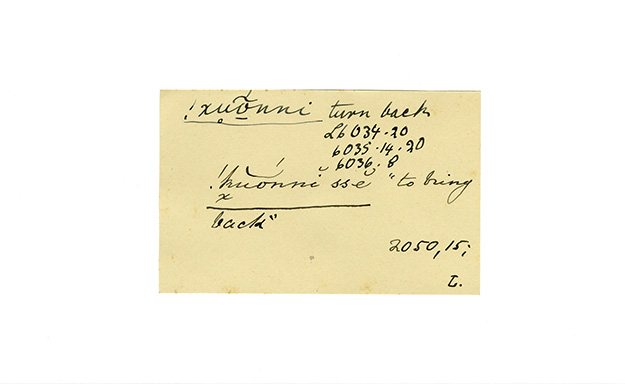 !xu̥ō̃nni turn back
Lb 034-20
6035-14-20
6036-8
!k͓uŏ́nní̆ ssĕ "to bring
back"
2050, 15;
L.